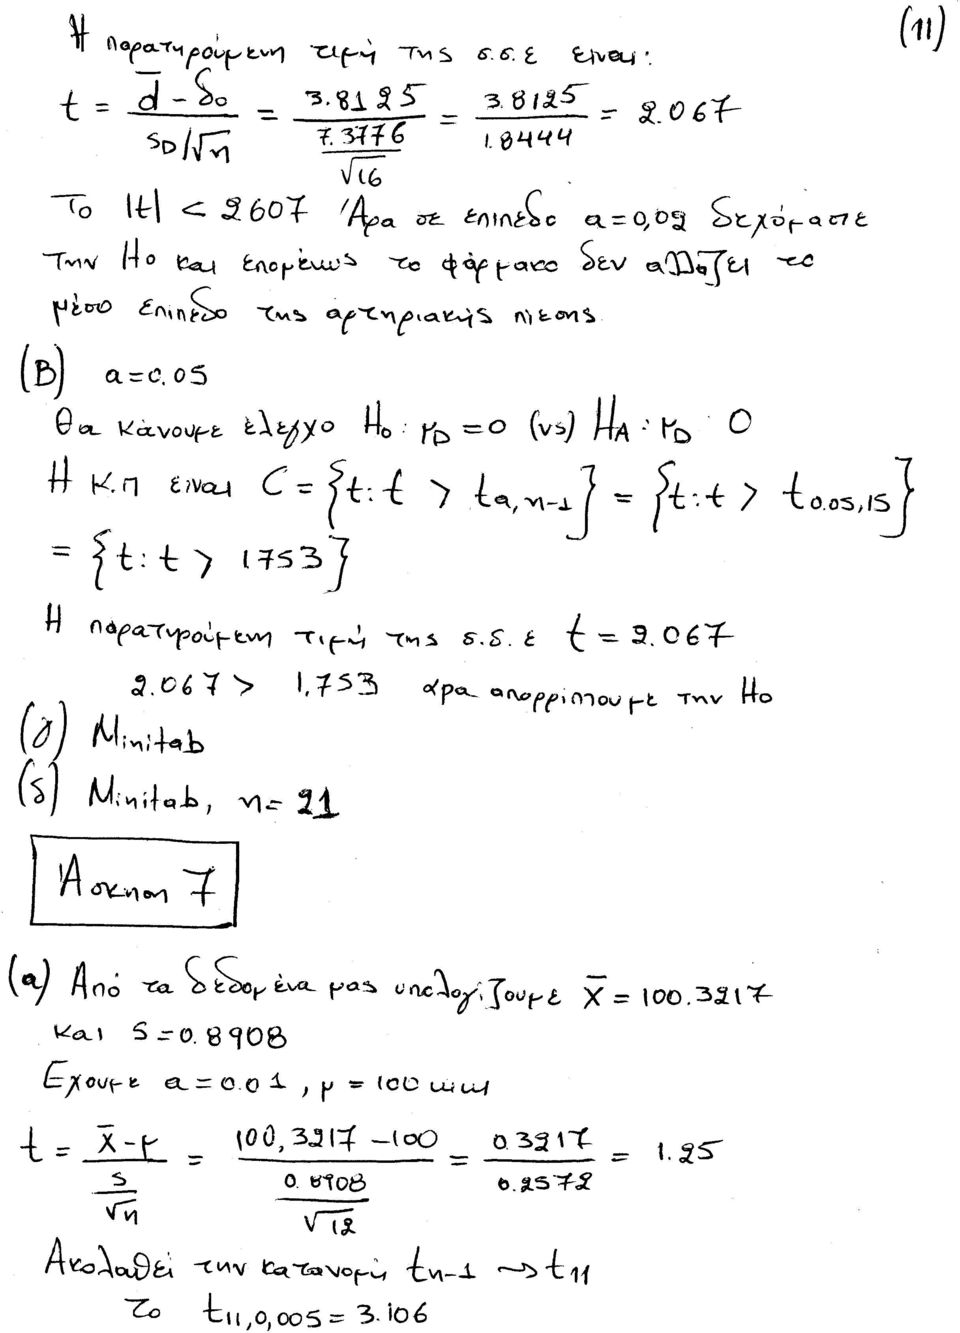 (11)
Η παρατηρούμενη τιμή της σ.σ.ε είναι:
t = (d̄ - δ₀)/(s_D/√n) = 3.8125/(7.3776/√16) = 3.8125/1.8444 = 2.067
Το |t| < 2607 Άρα σε επίπεδο a=0,02 δεχόμαστε
την Ηο και επομένως το φάρμακο δεν αλλάζει το
μέσο επίπεδο της αρτηριακής πίεσης
(B) a=0.05
Θα κάνουμε έλεγχο Ηο: μ_D = 0 (vs) H_A: μ_D 0
Η Κ.Π είναι C = {t: t > t_{a,n-1}} = {t: t > t_{0.05,15}}
= {t: t > 1.753}
Η παρατηρούμενη τιμή της σ.δ.ε t = 2.067
2.067 > 1,753 άρα απορρίπτουμε την Ηο
(γ) Minitab
(δ) Minitab, n= 21
Άσκηση 7
(α) Από τα δεδομένα μας υπολογίζουμε x̄ = 100.3217
και s=0.8908
Έχουμε a=0.01, μ = 100 mm
t = (x̄-μ)/(s/√n) = (100,3217 - 100)/(0.8908/√12) = 0.3217/0.2572 = 1.25
Ακολαθεί την κατανομή t_{n-1} ~> t₁₁
Το t_{11,0,005} = 3.106